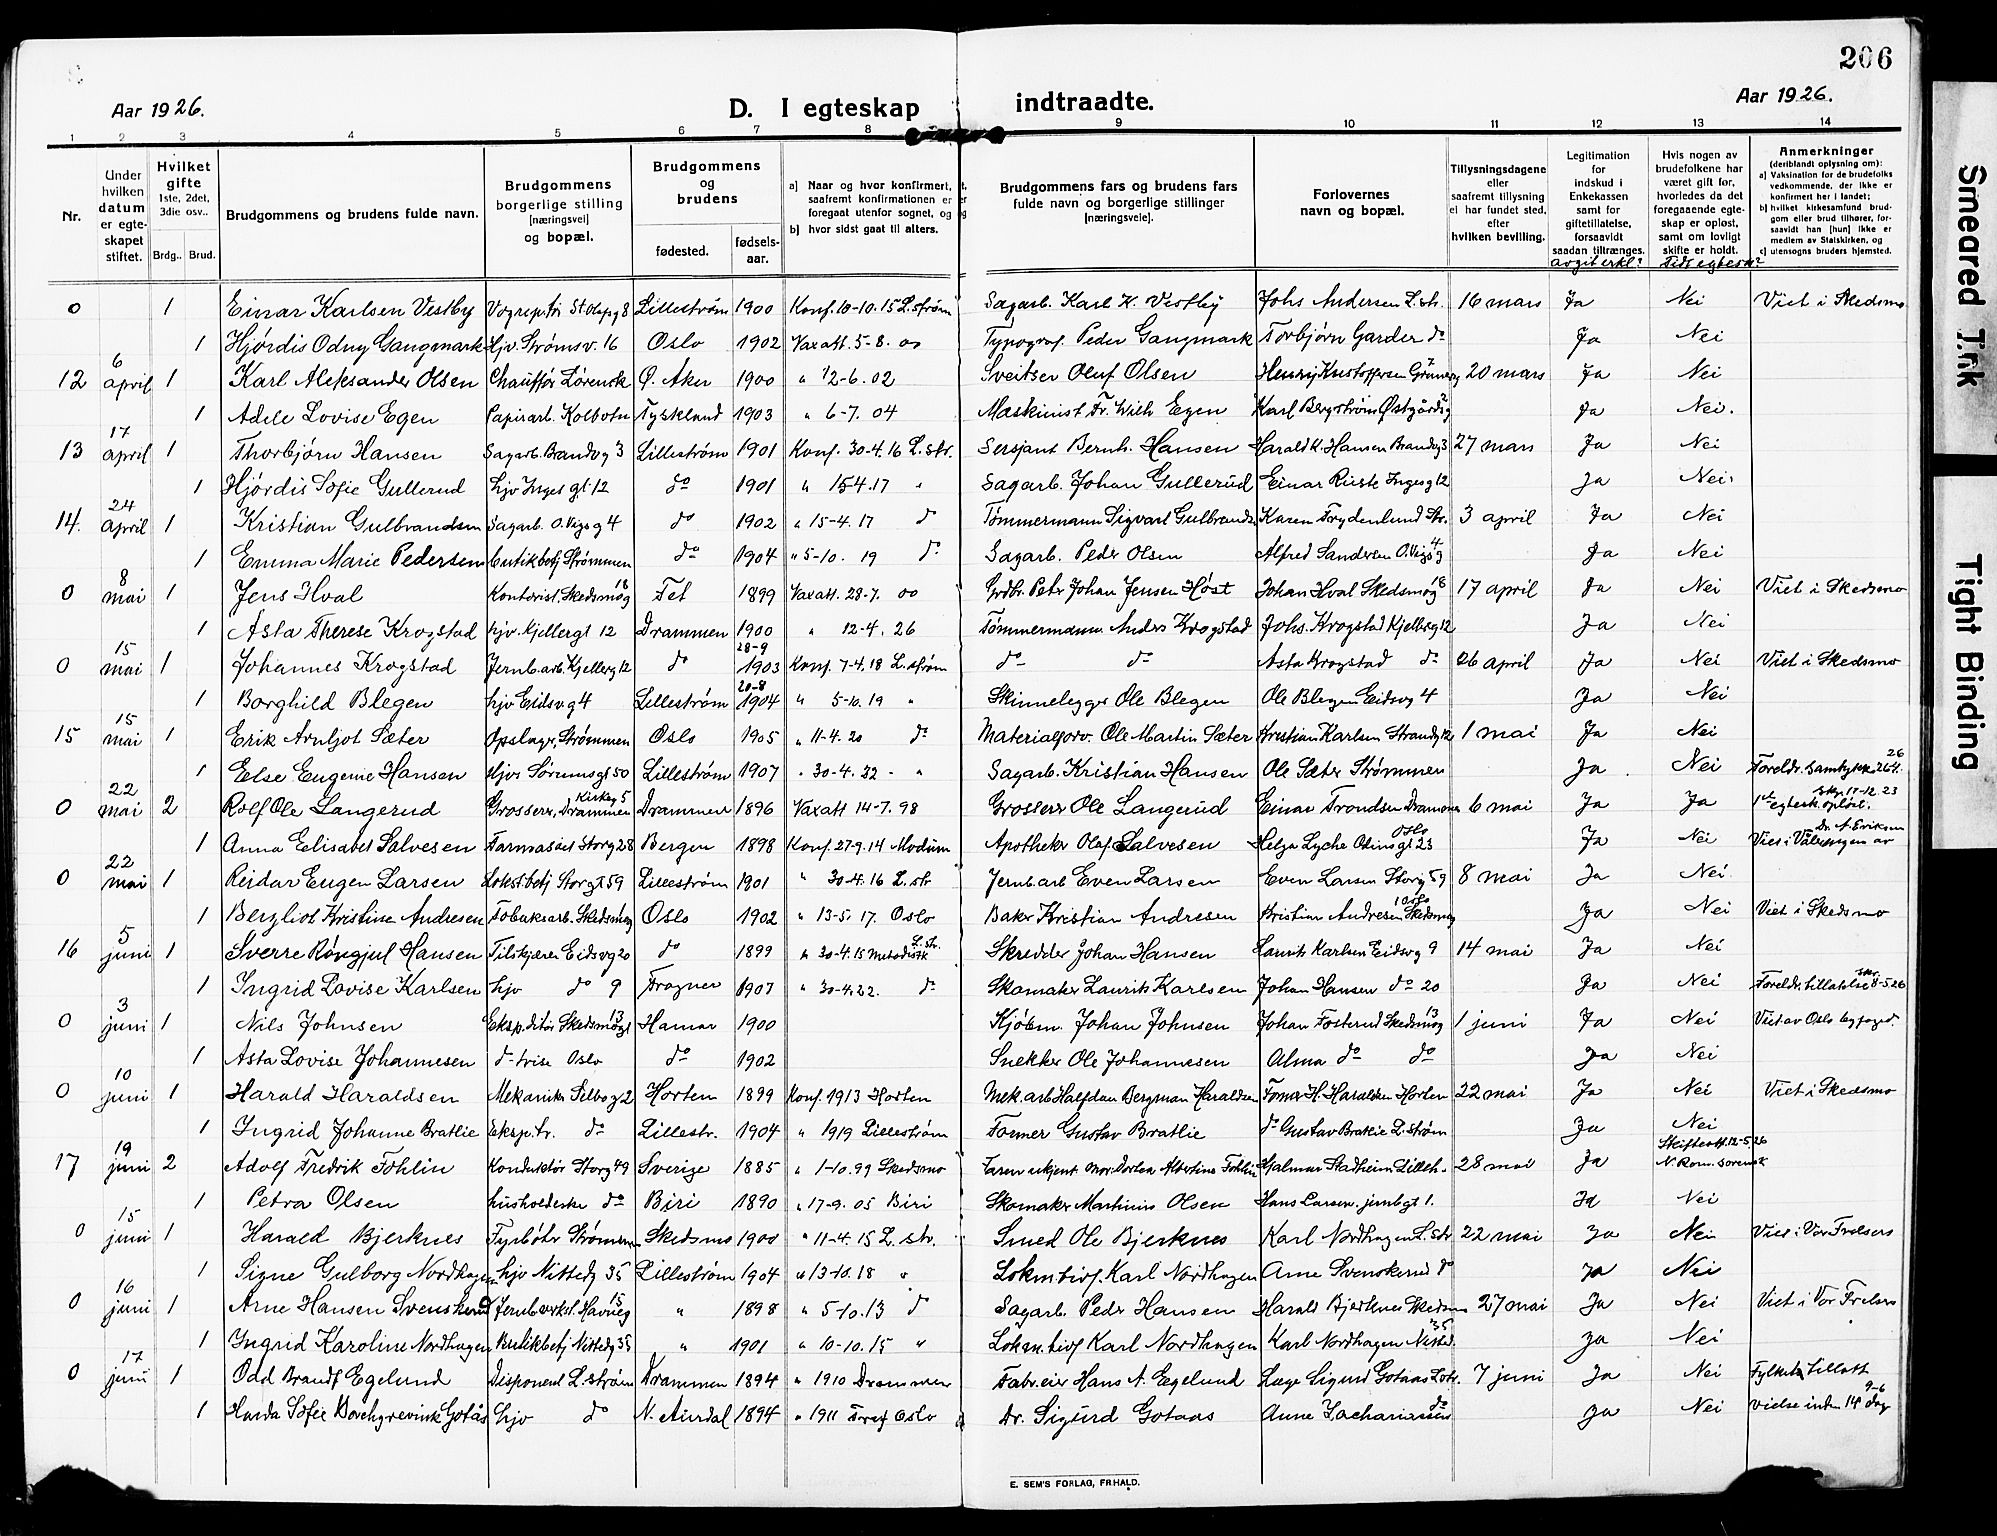 206
Aar 1926.
D. I egteskap indtraadte.
Aar 1926.
1 2 3 4 5 6 7 8 9 10 11 12 13 14
Nr.
Under hvilken datum er egteskapet stiftet.
Hvilket gifte 1ste, 2det, 3die osv..
Brdg.. Brud.
Brudgommens og brudens fulde navn.
Brudgommens borgerlige stilling [næringsvei] og bopæl.
Brudgommens og brudens
fødested. fødsels-aar.
a) Naar og hvor konfirmert, saafremt konfirmationen er foregaat utenfor sognet, og
b) hvor sidst gaat til alters.
Brudgommens fars og brudens fars fulde navn og borgerlige stillinger [næringsveie].
Forlovernes navn og bopæl.
Tillysningsdagene eller saafremt tillysning ei har fundet sted, efter hvilken bevilling.
Legitimation for indskud i Enkekassen samt for giftetillatelse, forsaavidt saadan tiltrænges.
Hvis nogen av brudefolkene har været gift før, hvorledes da det foregaaende egteskap er opløst, samt om lovligt skifte er holdt.
Anmerkninger (deriblandt oplysning om):
a) Vaksination for de brudefolks vedkommende, der ikke er konfirmert her i landet;
b) hvilket kirkesamfund brudgom eller brud tilhører, forsaavidt han [hun] ikke er medlem av Statskirken, og
c) utensogns bruders hjemsted.
0 1 Einar Karlsen Vestby Lillestrøm 1900 Konf. 10-10.15 L.strøm Sagarb. Karl K. Vestby Johs Andersen L.str. 16 mars Ja Nei Viet i Skedsmo
1 Hjørdis Odny Gangmark Hjv. Strømsv. 16 Oslo 1902 Vaxatt. 5-8. 00 Typograf. Peder Gangmark Torbjørn Garder do Ja Nei
12 6 april 1 Karl Aleksander Olsen Chauffør Lørensk Ø. Aker 1900 " 12-6. 02 Sveitser Oluf Olsen 20 mars Ja Nei
1 Adele Lovise Egen Papirarb. Kolbotn Tyskland 1903 " 6-7. 04 Maskinist Fr. Wilh Egen Karl Bergstrøm Ja Nei.
13 17 april 1 Thorbjørn Hansen Sagarb. Brandvg 3 Lillestrøm 1901 Konf. 30-4. 16 L. str. Sersjant Bernh. Hansen Harald K. Hansen Brandvg 3 27 mars Ja Nei
1 Hjørdis Sofie Gullerud hjv Inges gt. 12 do 1901 " 15 4.17 " Sagarb. Johan Gullerud Einar Inges g 12 Ja Nei.
14. 24 April 1 Kristian Gulbrandsen Sagarb. O. Vigs g 4 do 1902 " 15-4. 17 do Tømmermann Sigvart Gulbrands. Karen Frydenlund Str. 3 april Ja Nei
1 Emma Marie Pedersen Butikbetj Strømmen do 1904 " 5-10. 19 do Sagarb. Peder Olsen Alfred Sandersen O. Vigsg 4 Ja Nei
0 8 mai 1 Jens Hval Kontorist. Skedsmog 18 Fet 1899 Vaxatt. 28-7. 00 Grdbr. Petr Johan Jensen Høst Johan Hval Skedsmog 18 17 april Ja Nei Viet i Skedsmo
1 Asta Therese Krogstad hjv. Kjellergt 12 Drammen 1900 " 12-4. 26 Tømmermann Anders Krogstad Johs. Krogstad Kjellerg 12 Ja Nei
0 15 mai 1 Johannes Krogstad Jernb. arb. Kjellerg 12 do 28-9 1903 Konf. 7-4. 18 L. strøm do do Asta Krogstad do 26 april Ja Nei Viet i Skedsmo
1 Borghild Blegen hjv Eidsvg 4 Lillestrøm 20-8 1904 " 5-10. 19 " Skinnelegger Ole Blegen Ole Blegen Eidsvg 4 Ja Nei
15 15 mai 1 Erik Arnljot Sæter Opslager, Strømmen Oslo 1905 " 11-4. 20 do Materialforv. Ole Martin Sæter Kristian Karlsen Strandg 12 1 mai Ja Nei
1 Else Eugenie Hansen Hjv Sørumsgt 50 Lillestrøm 1907 " 30-4. 22 - " Sagarb. Kristian Hansen Ole Sæter Strømmen Ja Nei Foreldr. samtykke 26 4. 26
0 22 mai 2 Rolf Ole Langerud Grosserer, Drammen Kirkeg 5 Drammen 1896 Vaxatt 14-7. 98 Grosserer Ole Langerud Einar Trondsen Drammen 6 mai Ja Ja 1ste egtesk. opløst. 11-12. 23
1 Anna Elisabet Salvesen Farmasøit Storg 28 Bergen 1898 Konf. 27-9. 14 Modum Apotheker Olaf Salvesen Helga Lyche 23 Oslo Ja Nei Viet i Vålerengen av Dr. A. Eriksen
0 22 mai 1 Reidar Eugen Larsen Lokst. betj Storgt 59 Lillestrøm 1901 " 30-4. 16 L. str Jernb. arb Even Larsen Even Larsen Storg 59 8 mai Ja Nei
1 Bergliot Kristine Andresen Tobaksarb. Skedsmog Oslo 1902 " 13-5. 17. Oslo Baker Kristian Andresen Kristian Andresen Ja Nei Viet i Skedsmo
16 5 juni 1 Sverre Røngjul Hansen Tilskjærer Eidsvg 20 do 1899 " 30-4. 15 Metodistk L. str. Skredder Johan Hansen Laurits Karlsen Eidsvg 9 14 mai Ja Nei
1 Ingrid Lovise Karlsen hjv do 9 Frogner 1907 " 30-4. 22. do Skomaker Laurits Karlsen Johan Hansen do 20 Ja Nei Foreldr. tillatelse 8-5 26
0 3 juni 1 Nils Johnsen Ekspeditør Skedsmogt 13 Hamar 1900 Kjøbm. Johan Johnsen Johan Fosterud Skedsmog 13 1 juni Ja Nei Viet av Oslo byfoged.
1 Asta Lovise Johannesen do trise Oslo do 1902 Snekker Ole Johannesen Alma do do Ja Nei
0 10 juni 1 Harald Haraldsen Mekaniker 2 Horten 1899 Konf. 1913 Horten Mek. arb Halfdan Bergman Haraldsen H. Haraldsen Horten 22 mai Ja Nei Viet i Skedsmo
1 Ingrid Johanne Bratlie Eksp.tr. do Lillestr. 1904 " 1919 Lillestrøm Former Gustav Bratlie do Gustav Bratlie L. strøm Ja Nei
17 19 juni 2 Adolf Fredrik Tohlin Konduktør Storg 49 Sverige 1885 " 1-10. 99 Skedsmo Faren ukjent Mor: Dortea Albertine Tohlin Hjalmar Stadheim Lillestr. 28 mai Ja Skifteatt. 12-5 26 N. Rom. sorensk
1 Petra Olsen husholderske do Biri 1890 " 17-9. 05 Biri Skomaker Martinius Olsen Hans Larsen. jernbgt 1. Ja Nei
0 15 juni 1 Harald Bjerknes Fyrbøter Strømmen Skedsmo 1900 " 11-4. 15 L. str. Smed Ole Bjerknes Karl Nordhagen L. str 22 mai Ja Nei Viet i Vor Frelsers
1 Signe Gulborg Nordhagen hjv Nittedg 35 Lillestrøm 1904 " 13-10. 18 " Lokm.tivf. Karl Nordhagen Arne Svenskerud do Ja Nei
0 16 juni 1 Arne Hansen Svenskerud Jernbverkst. Havneg 15 " 1898 " 5-10. 13 do Sagarb. Peder Hansen Harald Bjerknes Skedsm 27 mai Ja Nei Viet i Vor Frelsers
1 Ingrid Karoline Nordhagen Butikbetj Nittedg 35 " 1901 " 10-10. 15 " Lokm.tivf Karl Nordhagen Karl Nordhagen Nitted. 35 Ja Nei
0 17 juni 1 Odd Brandt Egelund Disponent L. strøm Drammen 1894 " 1910 Drammen Fabr. eier Hans A. Egelund Læge Sigurd Gotaas Lstr. 7 juni Ja Nei Fylkets tillatt
1 Sofie Borchgrevink Gotås hjv do N. Aurdal 1894 " 1911 Oslo Dr. Sigurd Gotaas Anne Zachariassen do Ja Nei vielse inden 14 dag 9-6
E. SEM'S FORLAG, FRHALD.
Smeared Ink
Tight Binding